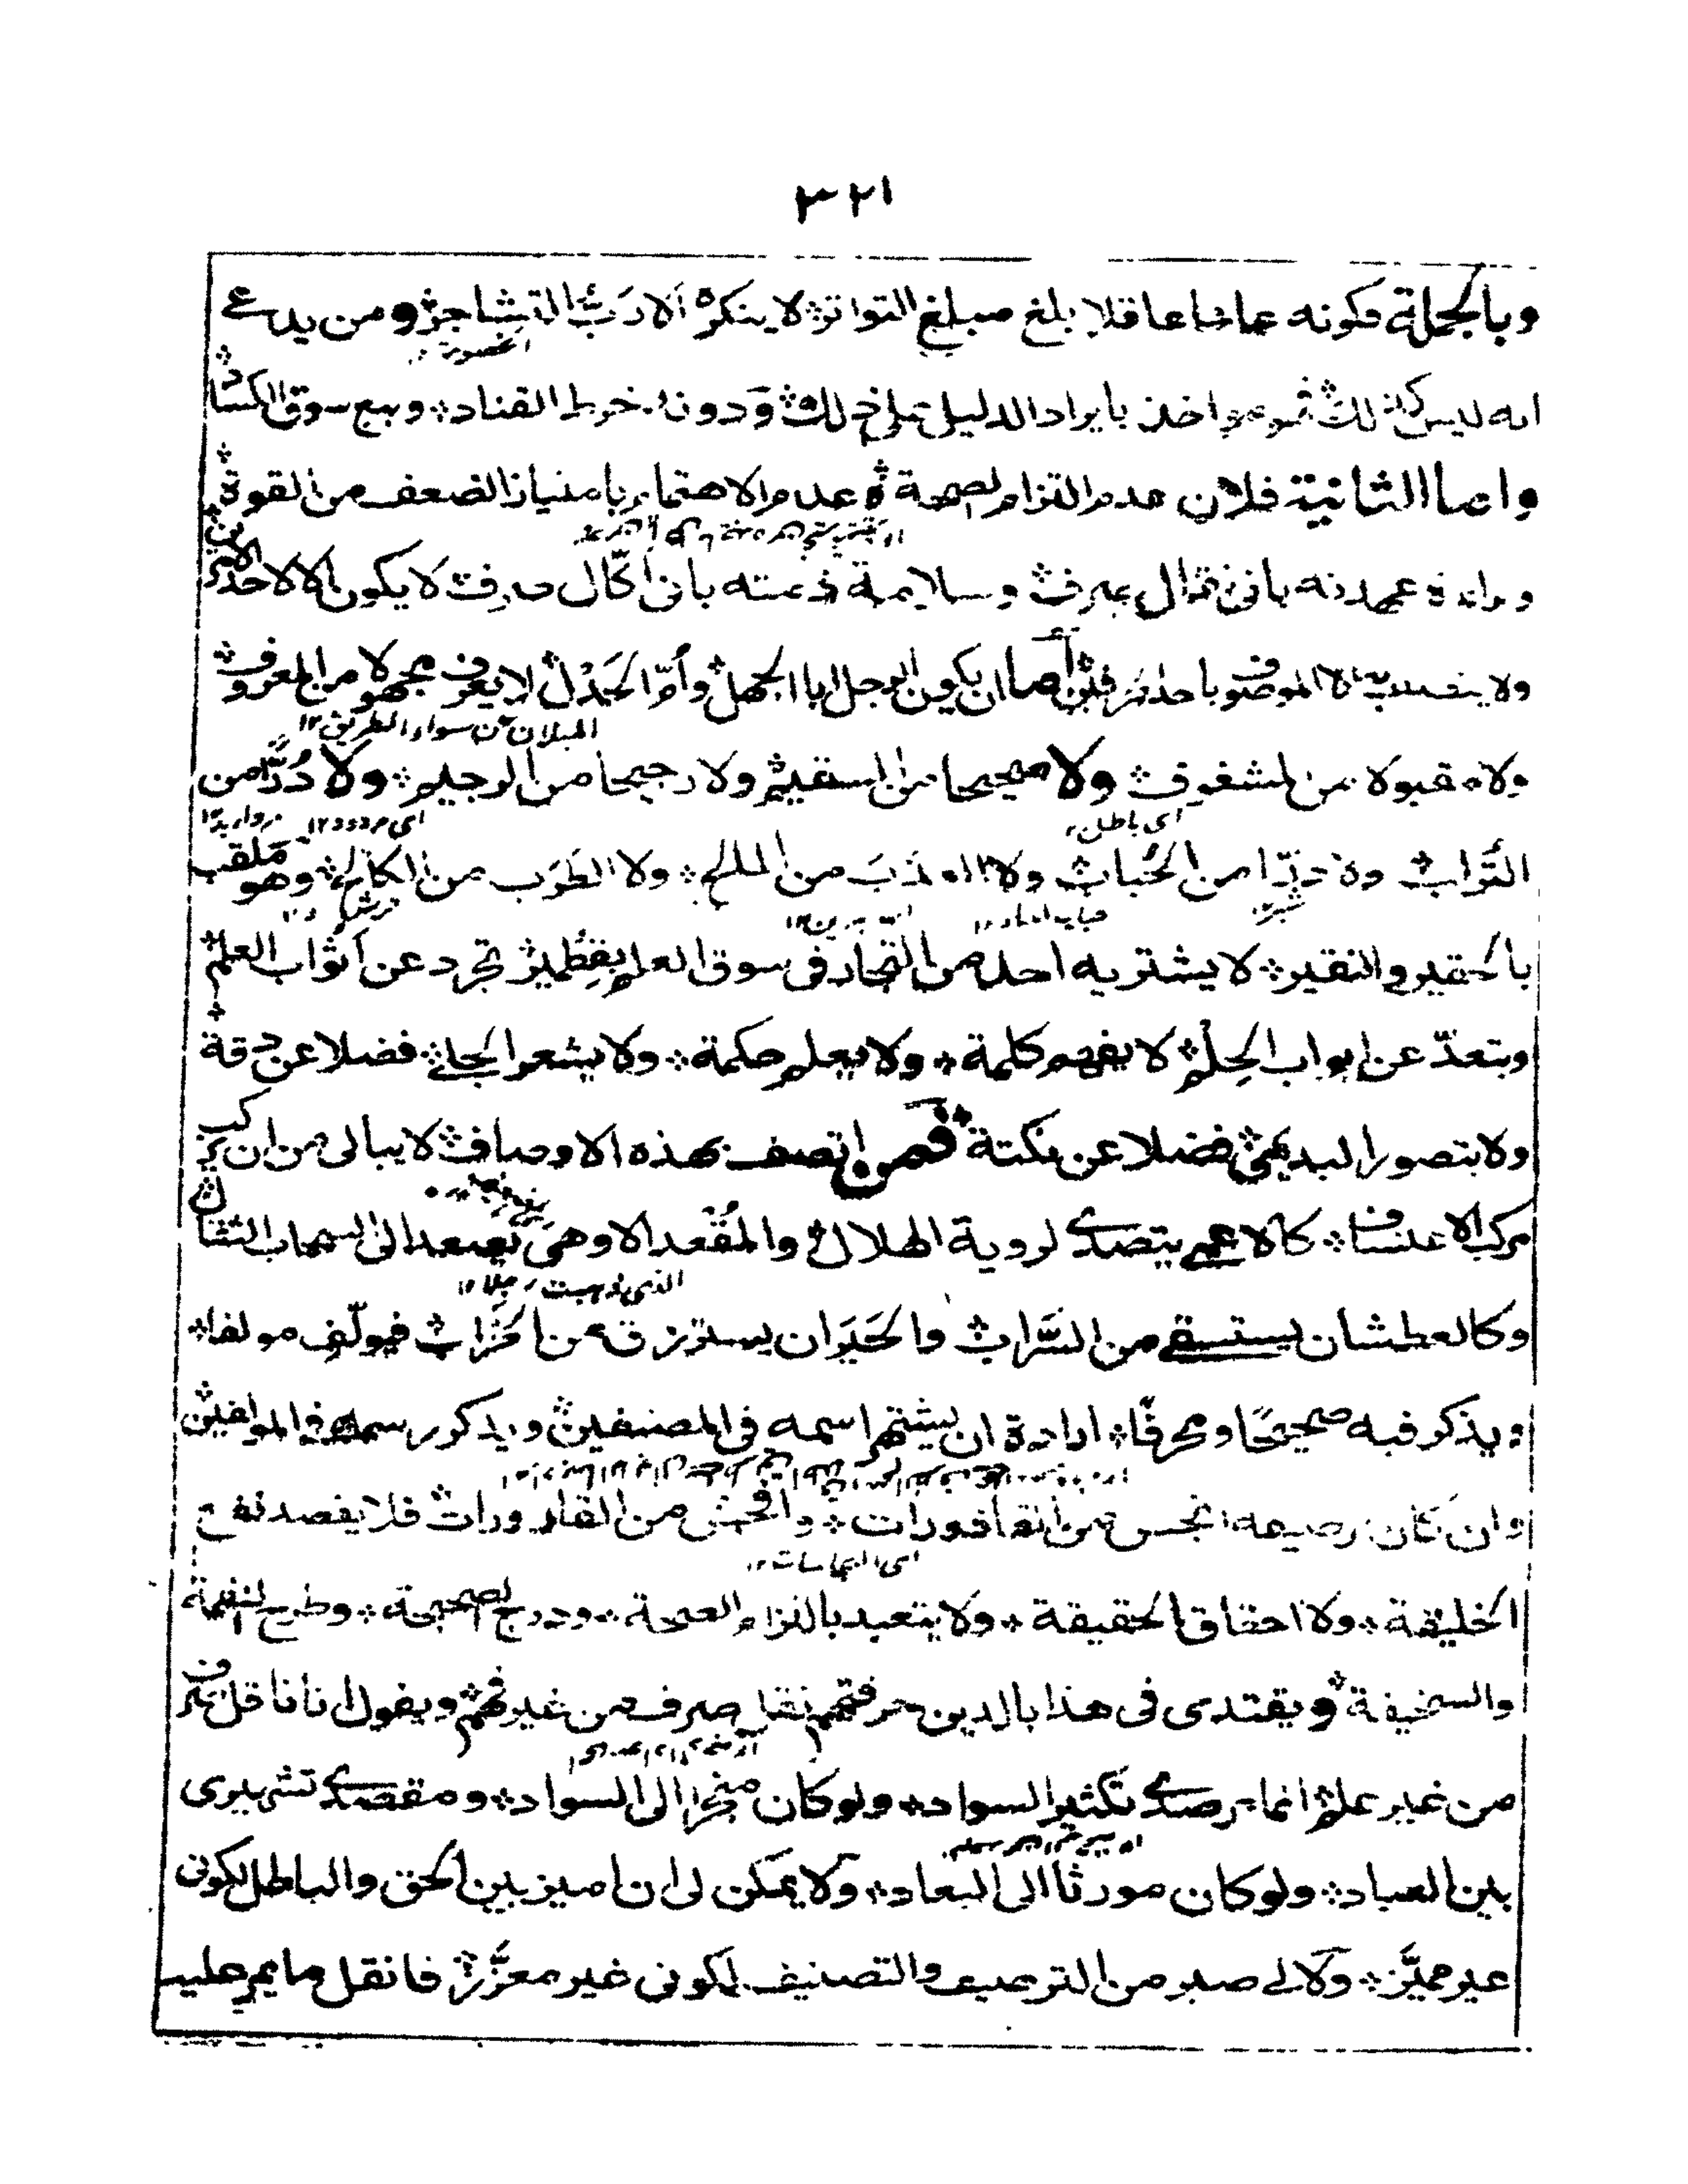 ٣٢١
وبالجملة فكونه عالما عاقلا بلغ مبلغ التواتر لا ينكره الا ربّ التشاجر ومن يدعي
الخصومة
انه ليس كذلك فهو مواخذ بايراد الدليل على ذلك ودونه خرط القتاد وبيع سوق الكساد
واما الثانية فلان عدم التزام الصحة وعدم الاهتمام بامتياز الضعف من القوة
عهدته باني نقال صرف وسلامة ذمته باني اكّال صرف لا يكون الا لاحد الامرين
ولا الموصوف باحد اما ان يكون الرجل ابا الجهل وأمّ الحَدْل لا يعرف مجهولا من المعروف
الميلان عن سواء الطريق ١٢
ولا مقبولا من المشغوف ولا صحيحا من السقيم ولا رجيحا من الرجيم ولا دُرّا من
اي باطل
اي مردود ١٢
مرواريد ١٢
التراب ولا من الحُباب ولا العذبَ من الملح ولا الطَرَب من الكلح وهو ملقب
بالحقير والنقير لا يشتريه احد من التجار في سوق العلم بقِطمير تجرد عن أثواب العلم
وبتعدّ عن ابواب الحِلم لا يفهم كلمة ولا يعلم حكمة ولا يشعر الجلي فضلا عن دقة
ولا يتصور البديهي فضلا عن نكتة فمن اتصف بهذه الاوصاف لا يبالي من ان يركب
مركب الاعتساف كالاعمى يتصدى لروية الهلال والمُقْعد الاوهى يصعد الى السحاب الثقال
الذي ذهبت رجلاه ١٢
وكالعطشان يستسقي من السَّراب والحَيَوان يسترزق من الخَرَاب فيولّف مولفا
ويذكر فيه صحيحًا ومحرفًا ارادة ان يشتهر اسمه في المصنفين ويذكر رسمه في المولفين
وان كان رصيعه انجس من القاذورات وافحش من القارورات فلا يقصد نفع
اي النجاسات ١٢
الخليقة ولا احقاق الحقيقة ولا يتعبد بالتزام الصحة ودرج الصحيحة وطرح السقيمة
والسخيفة ويقتدي في هذا بالذين حرفتهم نقل صرف من غير فهم ويقول انا ناقل صرف
من غير علم انما مرصدي تكثير السواد ولو كان منجرا الى السواد ومقصدي تشهيري
بين العباد ولو كان مورثا الى البعاد ولا يمكن لي ان اميز بين الحق والباطل لكوني
غير مميَّز ولا لي صبر من الترصيف والتصنيف لكوني غير معزَّز فانقل ما يمر عليه